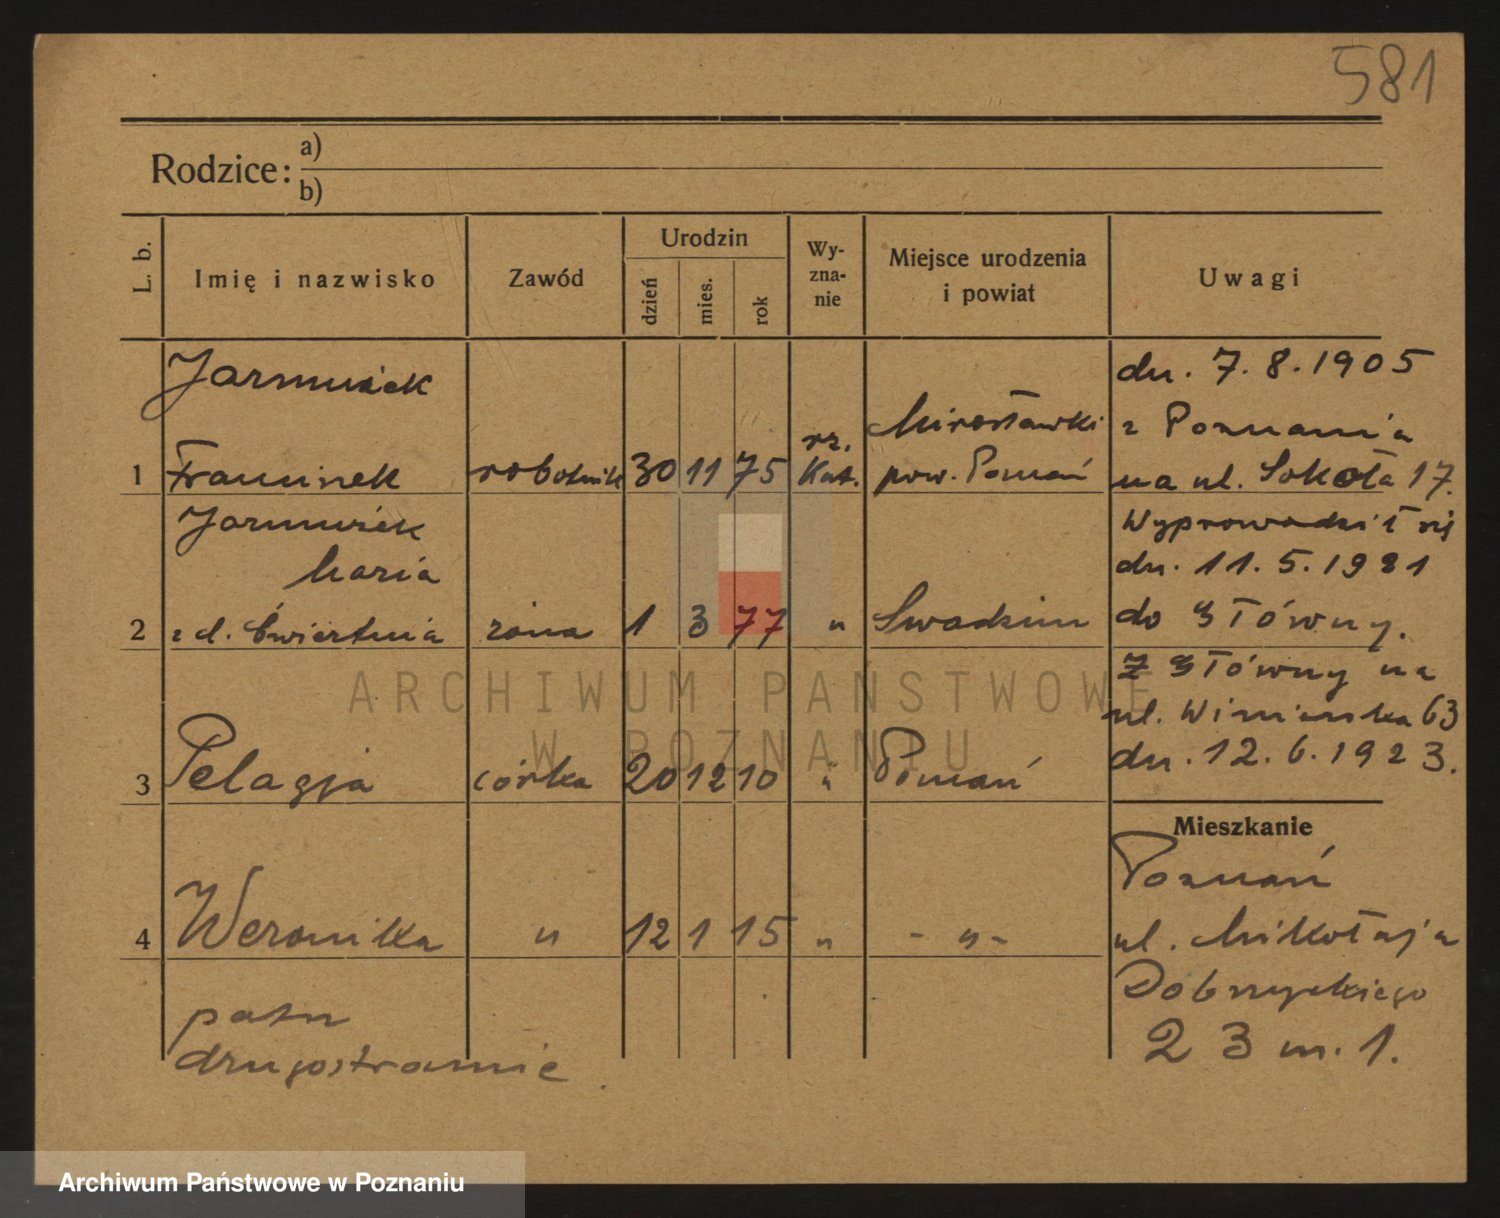 581
Rodzice:
a)
b)
L. b.
Imię i nazwisko
Zawód
Urodzin
dzień
mies.
rok
Wy-
zna-
nie
Miejsce urodzenia
i powiat
Uwagi
Jarmusiek
1 Franciszek robotnik 30 11 75 rz. Kat. Mirosławki pow. Poznań
dn. 7.8.1905
z Poznania
na ul. Sokoła 17.
Jarmusiek
Maria
2 z d. Ćwiertnia żona 1 3 77 " Swadzim
Wyprowadził się
dn. 11.5.1921
do Główny.
3 Pelagja córka 20 12 10 " Poznań
Z Główny na
ul. Winiarska 63
dn. 12.6.1923.
4 Weronika " 12 1 15 " - " -
Mieszkanie
Poznań
ul. Mikołaja
Dobrzyckiego
23 m. 1.
patrz
drugostronnie.
ARCHIWUM PAŃSTWOWE
W POZNANIU
Archiwum Państwowe w Poznaniu